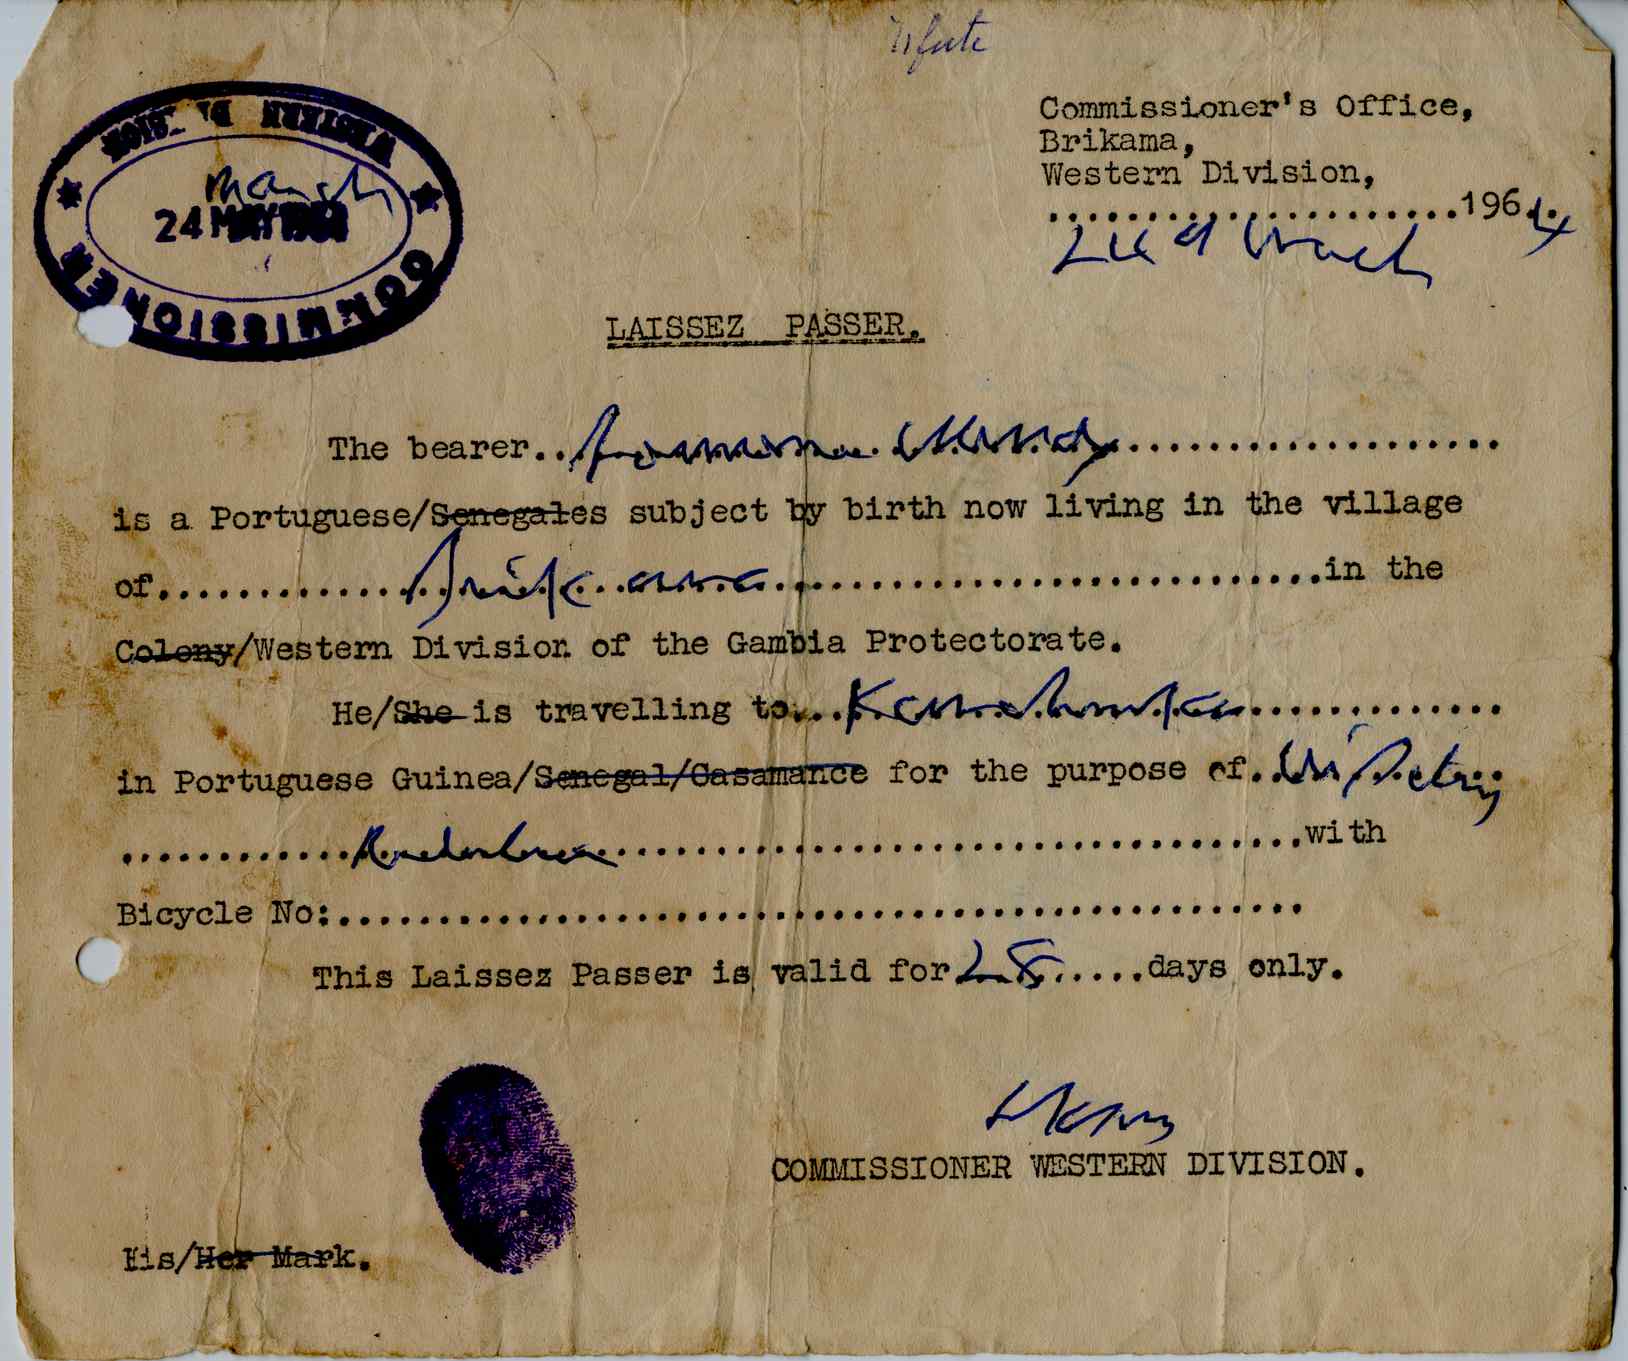 Commissioner's Office,
Brikama,
Western Division,
.....................1964
24th March
WESTERN DIVISION
March
24 MAY 1964
COMMISSIONER
LAISSEZ PASSER.
The bearer......................
is a Portuguese/Senegales subject by birth now living in the village
of..............Brikama............................in the
Colony/Western Division of the Gambia Protectorate.
He/She is travelling to.................
in Portuguese Guinea/Senegal/Casamance for the purpose of..Visiting
............................................with
Bicycle No:.................................................
This Laissez Passer is valid for 28.....days only.
COMMISSIONER WESTERN DIVISION.
His/Her Mark.